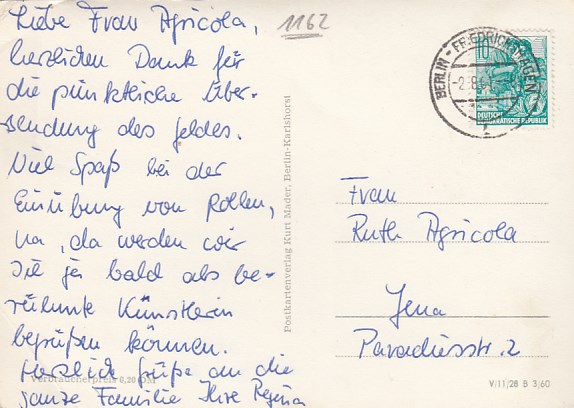 Liebe Frau Agricola,
herzlichen Dank für
die pünktliche Über-
sendung des Geldes.
Viel Spaß bei der
Einübung von Rollen,
na, da werden wir
Sie ja bald als be-
rühmte Künstlerin
begrüßen können.
Herzlich Grüße an die
ganze Familie Ihre Regina
Verbraucherpreis 0,20 DM
1162
Postkartenverlag Kurt Mader, Berlin-Karlshorst
BERLIN-FRIEDRICHSHAGEN
10
DEUTSCHE
DEMOKRATISCHE REPUBLIK
Frau
Ruth Agricola
Jena
Paradiesstr. 2
V/11/28 B 3/60